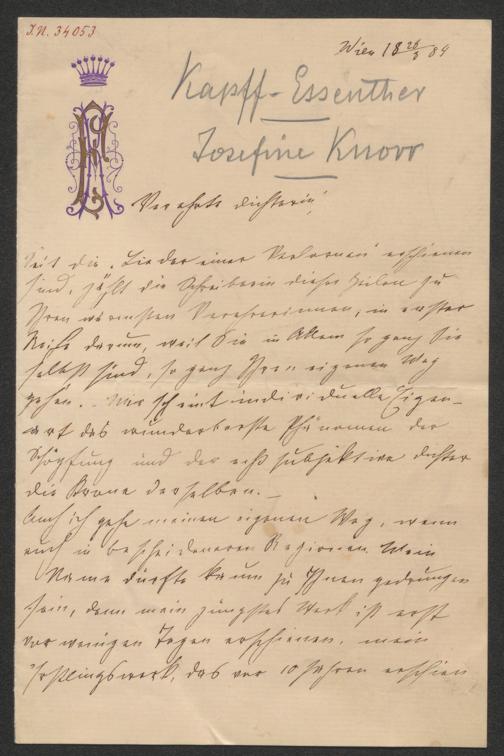 I.N. 34053
Wien 18 26/3 89
Kapff-Essenther
Josefine Knorr
Verehrte Dichterin!
Seit die „Lieder einer Verlornen" erschienen
sind, zählt die Schreiberin dieser Zeilen zu
Ihren wärmsten Verehrerinnen, in erster
Reihe darum, weil Sie in Allem so ganz Sie
selbst sind, so ganz Ihren eigenen Weg
gehen. Mir scheint individuelle Eigen-
art das wunderbarste Phänomen der
Schöpfung und der echt subjektive Dichter
die Krone derselben. –
Auch ich gehe meinen eigenen Weg, wenn
auch in bescheideneren Regionen. Mein
Name dürfte kaum zu Ihnen gedrungen
sein, denn mein jüngstes Werk ist erst
vor wenigen Tagen erschienen, mein
Erstlingswerk, das vor 10 Jahren erschien